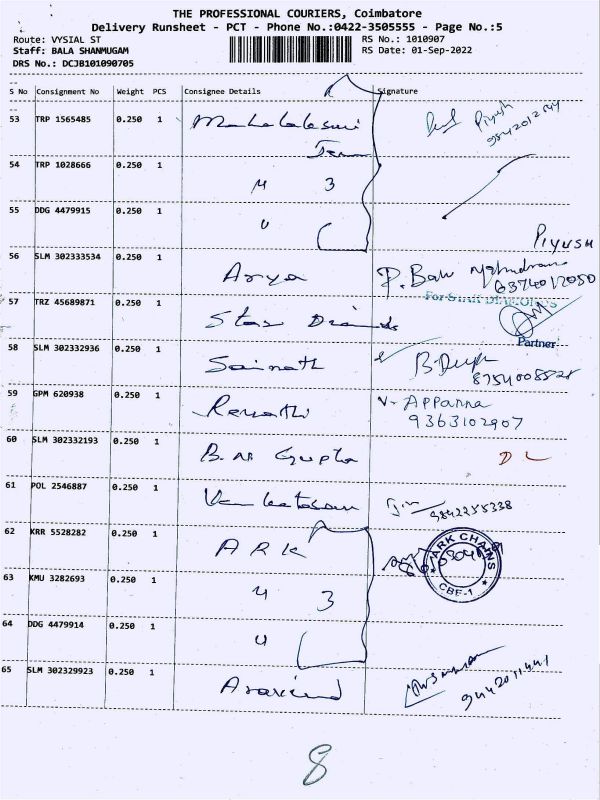 THE PROFESSIONAL COURIERS, Coimbatore
Delivery Runsheet - PCT - Phone No.:0422-3505555 - Page No.:5
Route: VYSIAL ST
RS No.: 1010907
Staff: BALA SHANMUGAM
RS Date: 01-Sep-2022
DRS No.: DCJB101090705
S No Consignment No Weight PCS Consignee Details Signature
53 TRP 1565485 0.250 1 Piyush
54 TRP 1028666 0.250 1 " 3
55 DDG 4479915 0.250 1 "
PIYUSH
56 SLM 302333534 0.250 1 Arya P. Balu
57 TRZ 45689871 0.250 1 Star Diamds For STAR DIAMONDS
Partner
58 SLM 302332936 0.250 1 Sainath B. Deepk
8754008528
59 GPM 620938 0.250 1 Revathi V. APPanna
9363102907
60 SLM 302332193 0.250 1 B.M Gupta D L
61 POL 2546887 0.250 1 Venkatesan 9842255338
62 KRR 5528282 0.250 1 ARK ARK CHAINS
CBE-1
63 KMU 3282693 0.250 1 " 3
64 DDG 4479914 0.250 1 "
65 SLM 302329923 0.250 1 Aravind
8